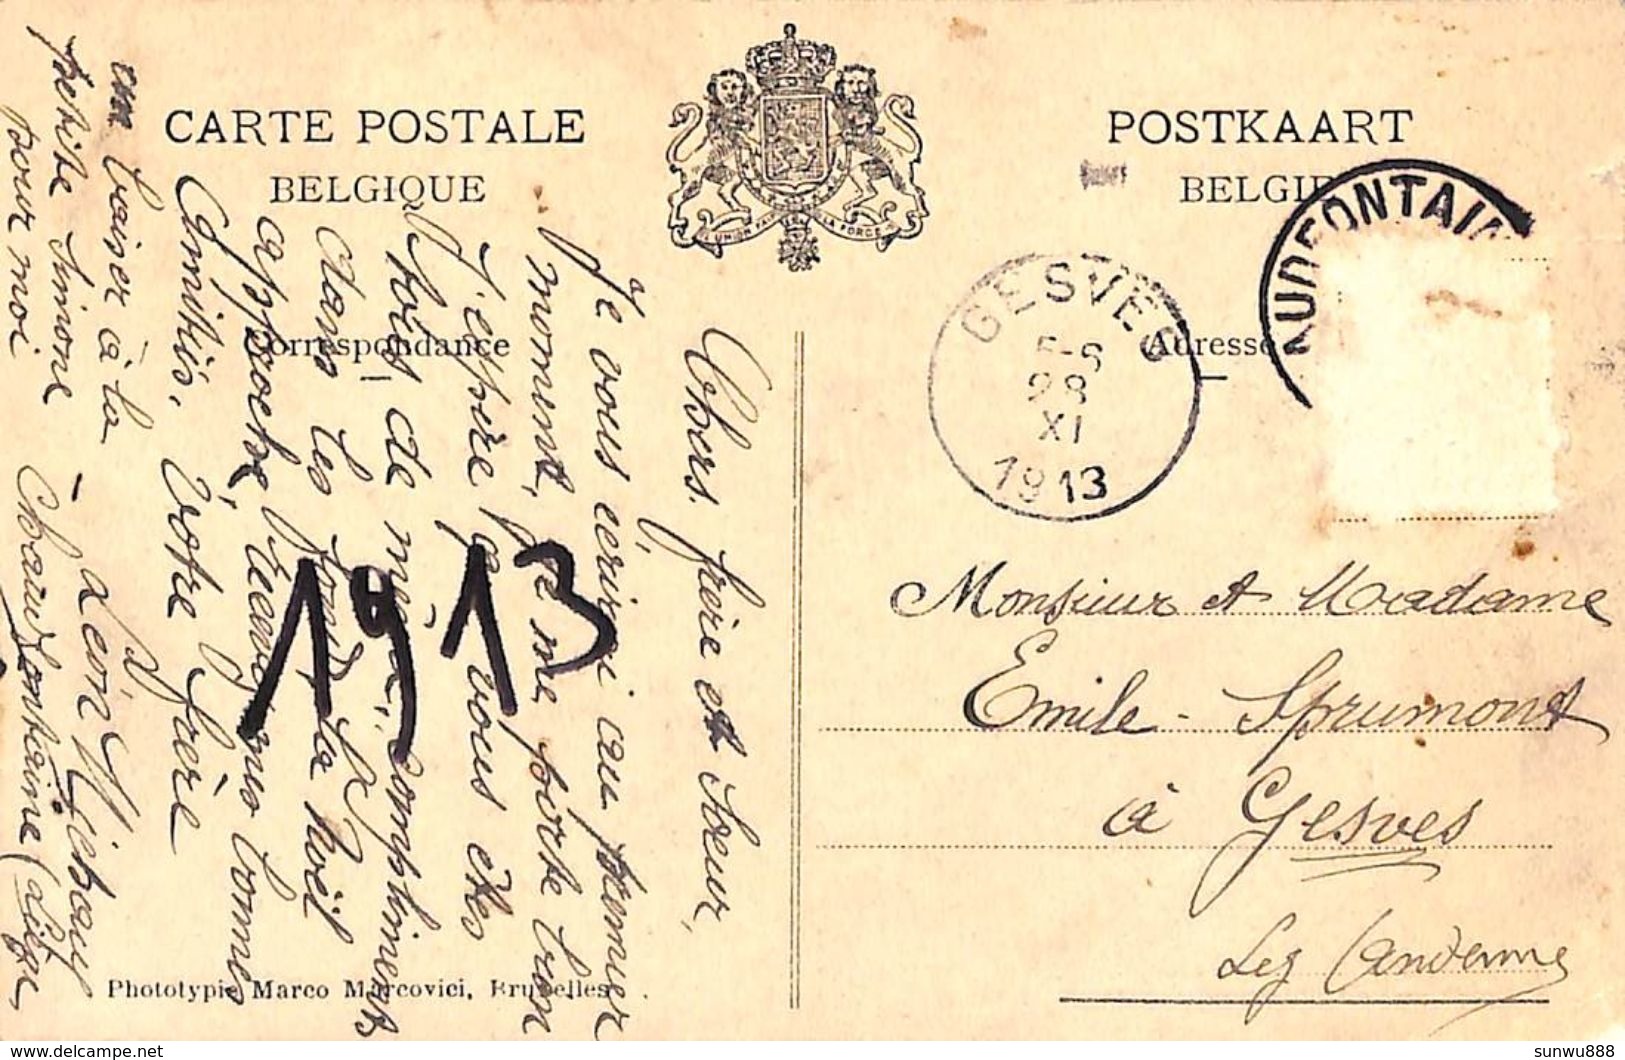 CARTE POSTALE
BELGIQUE
POSTKAART
BELGIE
L'UNION FAIT LA FORCE
Correspondance
Adresse
AUDFONTAIN
GESVES
5-6
28
XI
1913
Chers frère et Sœur,
Je vous écrirai au premier
moment, je me porte bien
J'espère que vous êtes
tois de même. Compliments
dans les fonds, la Noël
approche,
Amitiés, Votre frère
Léon
un baiser à la
petite Simone
pour moi
Chaudfontaine (Liége)
1913
Monsieur et Madame
Emile Sprumont
à Gesves
Lez (Andenne
Phototypie Marco Marcovici, Bruxelles
delcampe.net
sunwu888